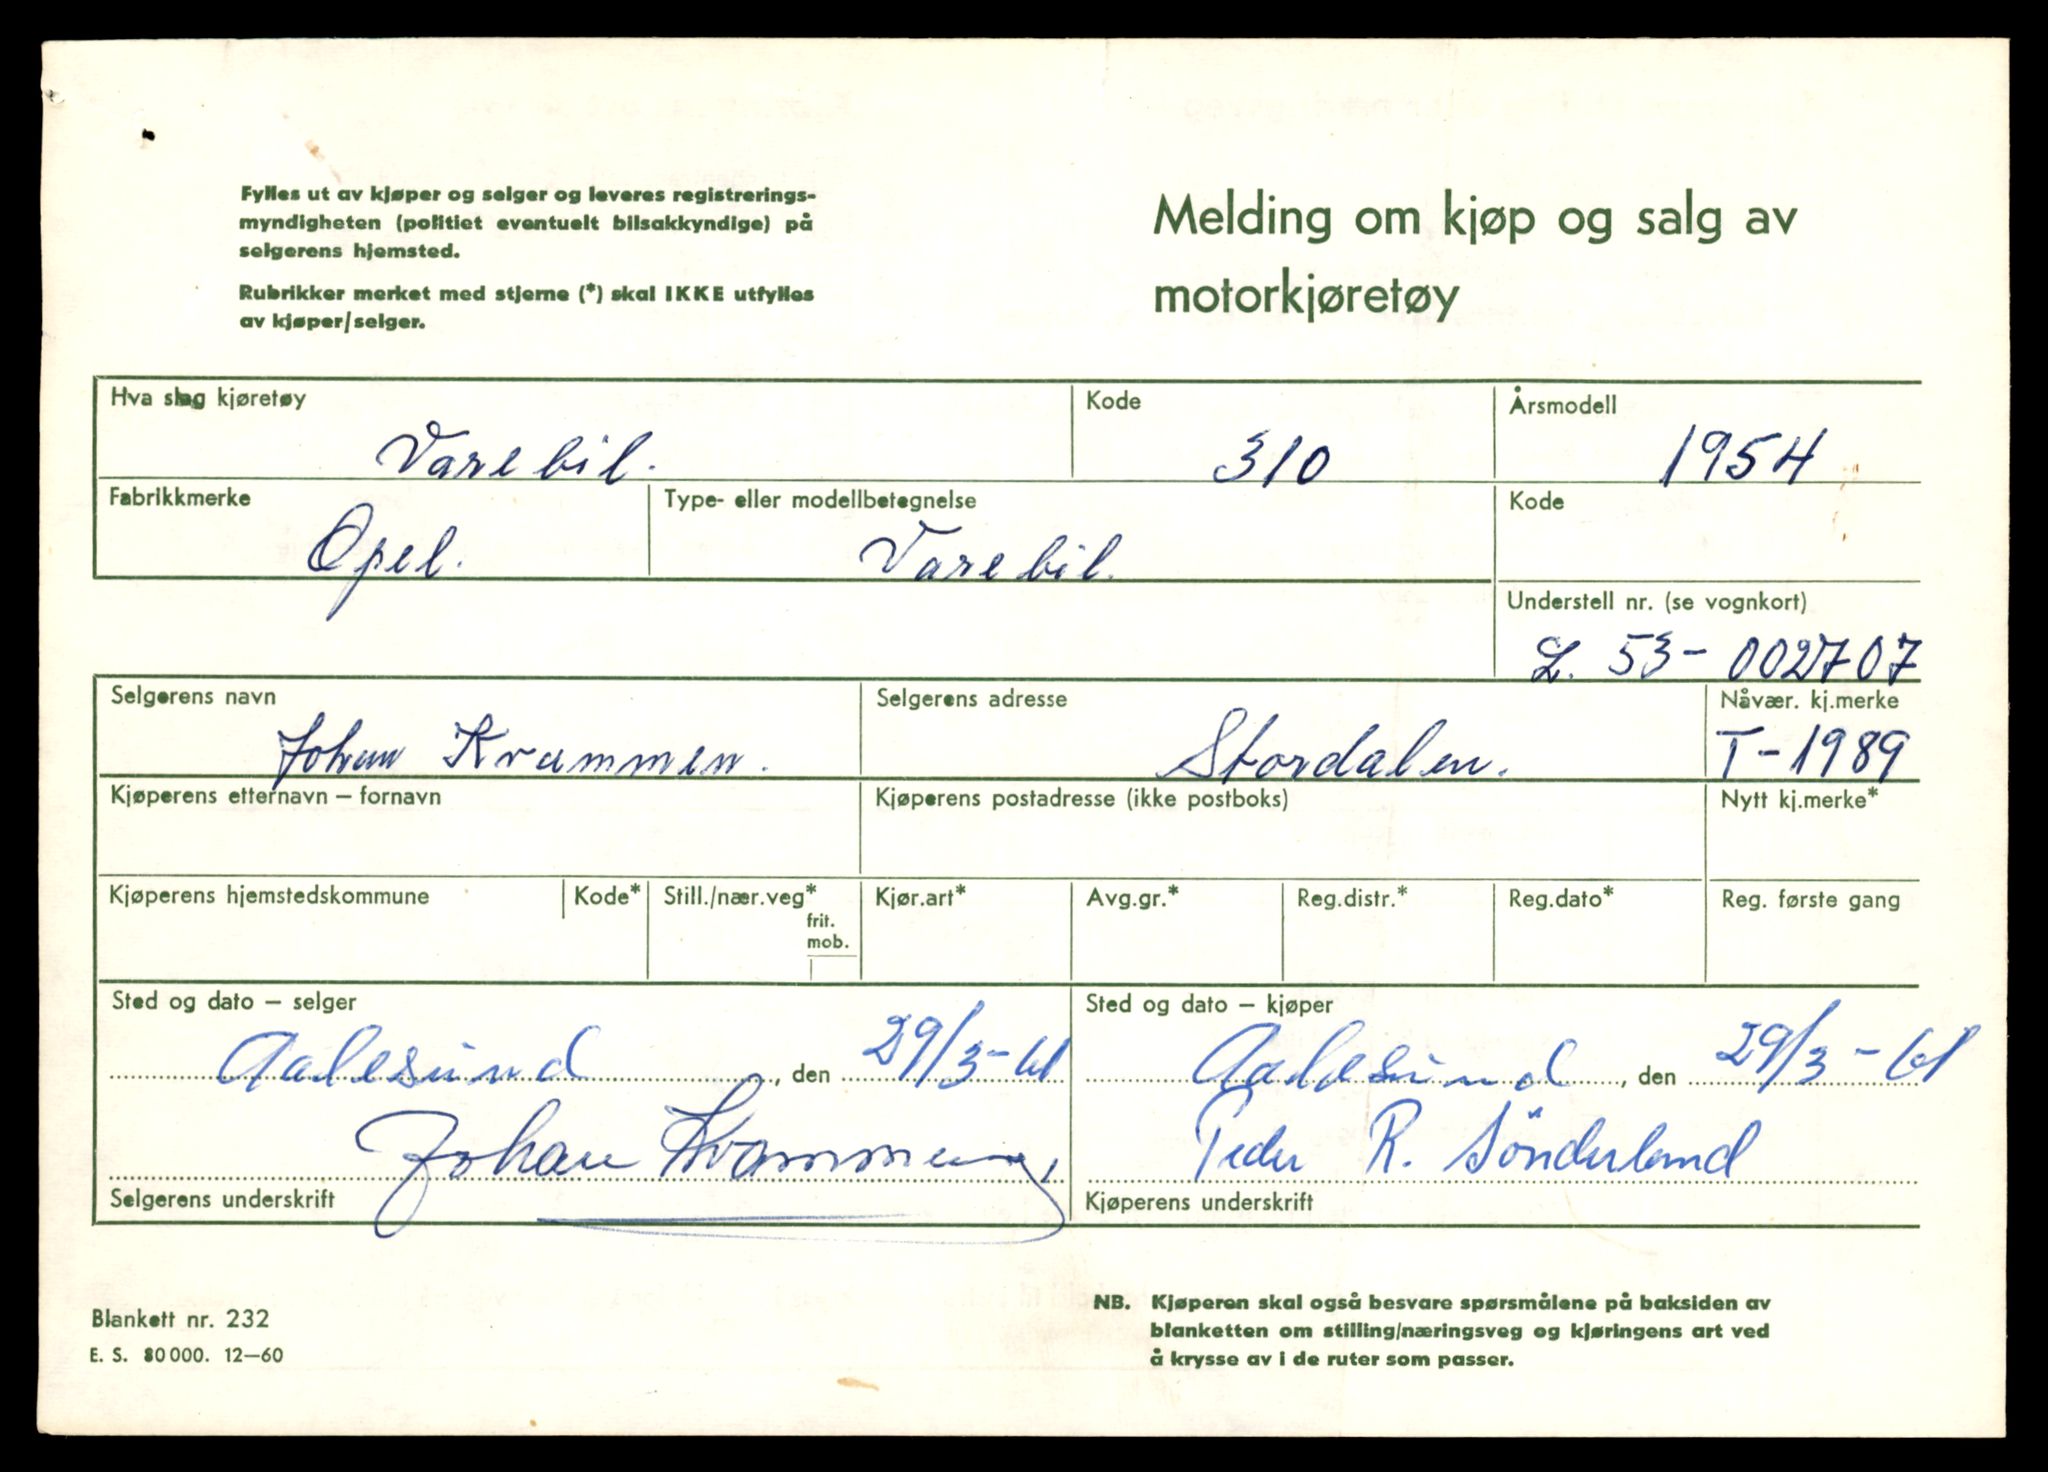 Fylles ut av kjøper og selger og leveres registrerings-
myndigheten (politiet eventuelt bilsakkyndige) på
selgerens hjemsted.
Rubrikker merket med stjerne (*) skal IKKE utfylles
av kjøper/selger.
Melding om kjøp og salg av
motorkjøretøy
Hva slag kjøretøy
Varebil.
Kode
310
Årsmodell
1954
Fabrikkmerke
Opel.
Type- eller modellbetegnelse
Varebil.
Kode
Understell nr. (se vognkort)
L. 53-002707
Selgerens navn
Johan Kvammen.
Selgerens adresse
Stordalen.
Nåvær. kj.merke
T-1989
Kjøperens etternavn – fornavn
Kjøperens postadresse (ikke postboks)
Nytt kj.merke*
Kjøperens hjemstedskommune
Kode*
Still./nær.veg*
frit.
mob.
Kjør.art*
Avg.gr.*
Reg.distr.*
Reg.dato*
Reg. første gang
Sted og dato – selger
Aalesund, den 29/3-61
Johan Kvammen,
Selgerens underskrift
Sted og dato – kjøper
Aalesund, den 29/3-61
Peder R. Sönderland
Kjøperens underskrift
Blankett nr. 232
E. S. 80000. 12–60
NB. Kjøperen skal også besvare spørsmålene på baksiden av
blanketten om stilling/næringsveg og kjøringens art ved
å krysse av i de ruter som passer.